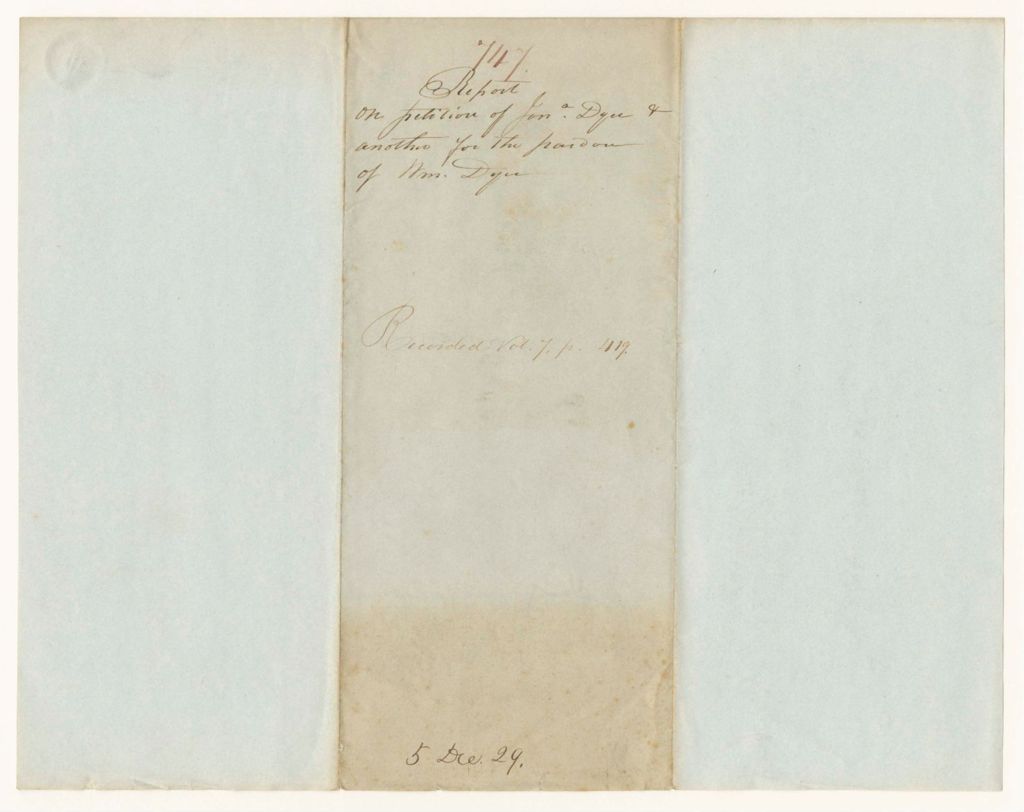 747.
Report
on petition of Jona. Dyer &
another for the pardon
of Wm. Dyer
Recorded Vol. 7. p. 419.
5 Dec. 29.